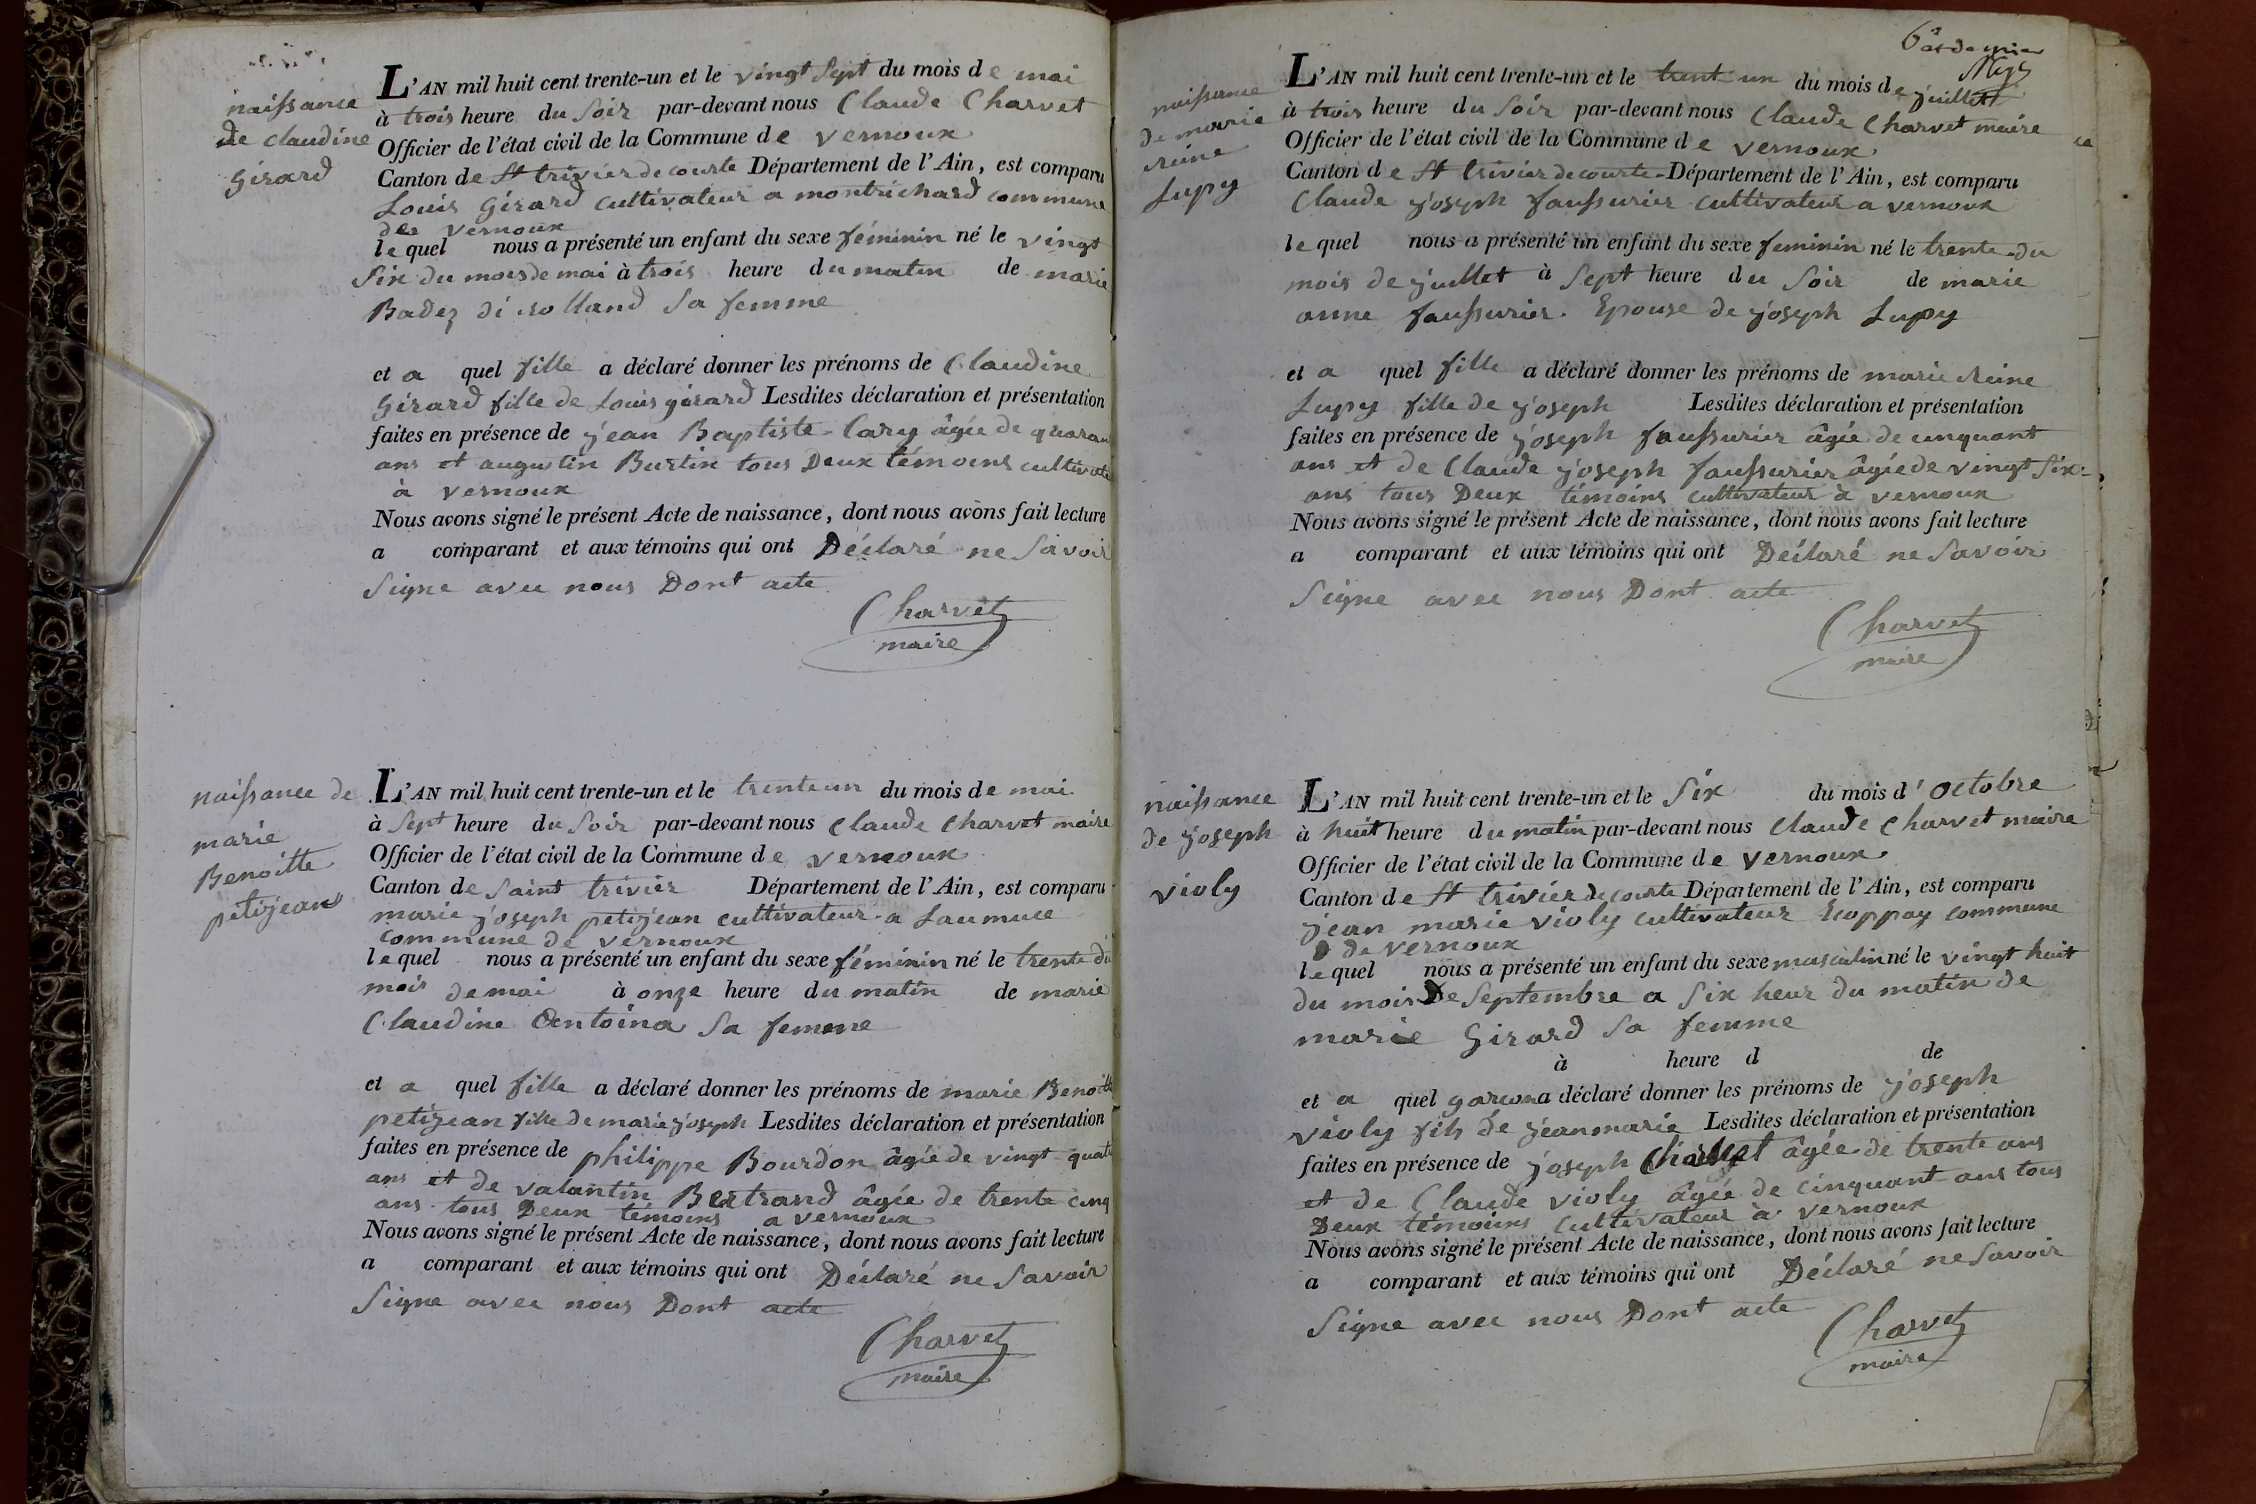 naissance
de claudine
Girard
L'AN mil huit cent trente-un et le vingt sept du mois de mai
à trois heure du soir par-devant nous Claude Charvet
Officier de l'état civil de la Commune de vernoux
Canton de St trivier de courte Département de l'Ain, est comparu
Louis Girard cultivateur a montrichard commune
de vernoux
lequel nous a présenté un enfant du sexe féminin né le vingt
six du mois de mai à trois heure du matin de marie
Badez di rolland sa femme
et a quel fille a déclaré donner les prénoms de Claudine
Girard fille de Louis girard Lesdites déclaration et présentation
faites en présence de jean Baptiste Cary âgée de quaran
ans et augustin Burtin tous Deux témoins cultivate
à vernoux
Nous avons signé le présent Acte de naissance, dont nous avons fait lecture
a comparant et aux témoins qui ont Déclaré ne savoir
signe avec nous Dont acte
Charvet
maire
naissance de
marie
Benoitte
petijean
L'AN mil huit cent trente-un et le trente un du mois de mai
à sept heure du soir par-devant nous Claude Charvet maire
Officier de l'état civil de la Commune de vernoux
Canton de saint trivier Département de l'Ain, est comparu
marie joseph petijean cultivateur a Laumuce
commune de vernoux
lequel nous a présenté un enfant du sexe féminin né le trente du
mois de mai à onze heure du matin de marie
Claudine Antoina sa femme
et a quel fille a déclaré donner les prénoms de marie Benoitt
petijean fille de marie joseph Lesdites déclaration et présentation
faites en présence de philippe Bourdon âgée de vingt quatr
ans et de valantin Bertrand âgée de trente cinq
ans tous Deux témoins a vernoux
Nous avons signé le présent Acte de naissance, dont nous avons fait lecture
a comparant et aux témoins qui ont Déclaré ne savoir
signe avec nous Dont acte
Charvet
maire
6e et dernier
naissance
de marie
reine
Lupy
L'AN mil huit cent trente-un et le trent un du mois de juillet
à trois heure du soir par-devant nous Claude Charvet maire
Officier de l'état civil de la Commune de vernoux
Canton de St trivier de courte Département de l'Ain, est comparu
Claude joseph faussurier cultivateur a vernoux
lequel nous a présenté un enfant du sexe feminin né le trente du
mois de juillet à sept heure du soir de marie
anne faussurier Epouse de joseph Lupy
et a quel fille a déclaré donner les prénoms de marie reine
Lupy fille de joseph Lesdites déclaration et présentation
faites en présence de joseph faussurier âgée de cinquant
ans et de Claude joseph faussurier âgée de vingt six
ans tous Deux témoins cultivateur à vernoux
Nous avons signé le présent Acte de naissance, dont nous avons fait lecture
a comparant et aux témoins qui ont Déclaré ne savoir
signe avec nous Dont acte
Charvet
maire
naissance
de joseph
violy
L'AN mil huit cent trente-un et le six du mois d'octobre
à huit heure du matin par-devant nous Claude Charvet maire
Officier de l'état civil de la Commune de vernoux
Canton de St trivier de courte Département de l'Ain, est comparu
jean marie violy cultivateur Ecoppoy commune
de vernoux
lequel nous a présenté un enfant du sexe masculin né le vingt huit
du mois De septembre a six heur du matin de
marie Girard sa femme
à heure d de
et a quel garcon a déclaré donner les prénoms de joseph
violy fils de jean marie Lesdites déclaration et présentation
faites en présence de joseph âgée de trente ans
et de Claude violy âgée de cinquant ans tous
Deux témoins cultivateur à vernoux
Nous avons signé le présent Acte de naissance, dont nous avons fait lecture
a comparant et aux témoins qui ont Déclaré ne savoir
signe avec nous Dont acte
Charvet
maire